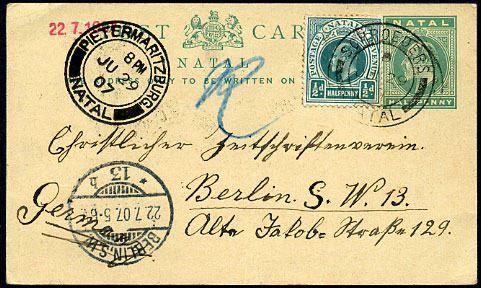 22.7.19
POST CARD
NATAL
ONLY TO BE WRITTEN ON
PIETERMARITZBURG
8 PM
JU 29
07
NATAL
POSTAGE NATAL REVENUE
½d ½d
HALFPENNY
SCHROEDERS
NATAL
NATAL
HALFPENNY
Christlicher Zeitschriftenverein.
Berlin. S. W. 13.
Alte Jakob-Straße 129.
Germ
BERLIN. S.W.
22.7.07.5-6
* 13 b